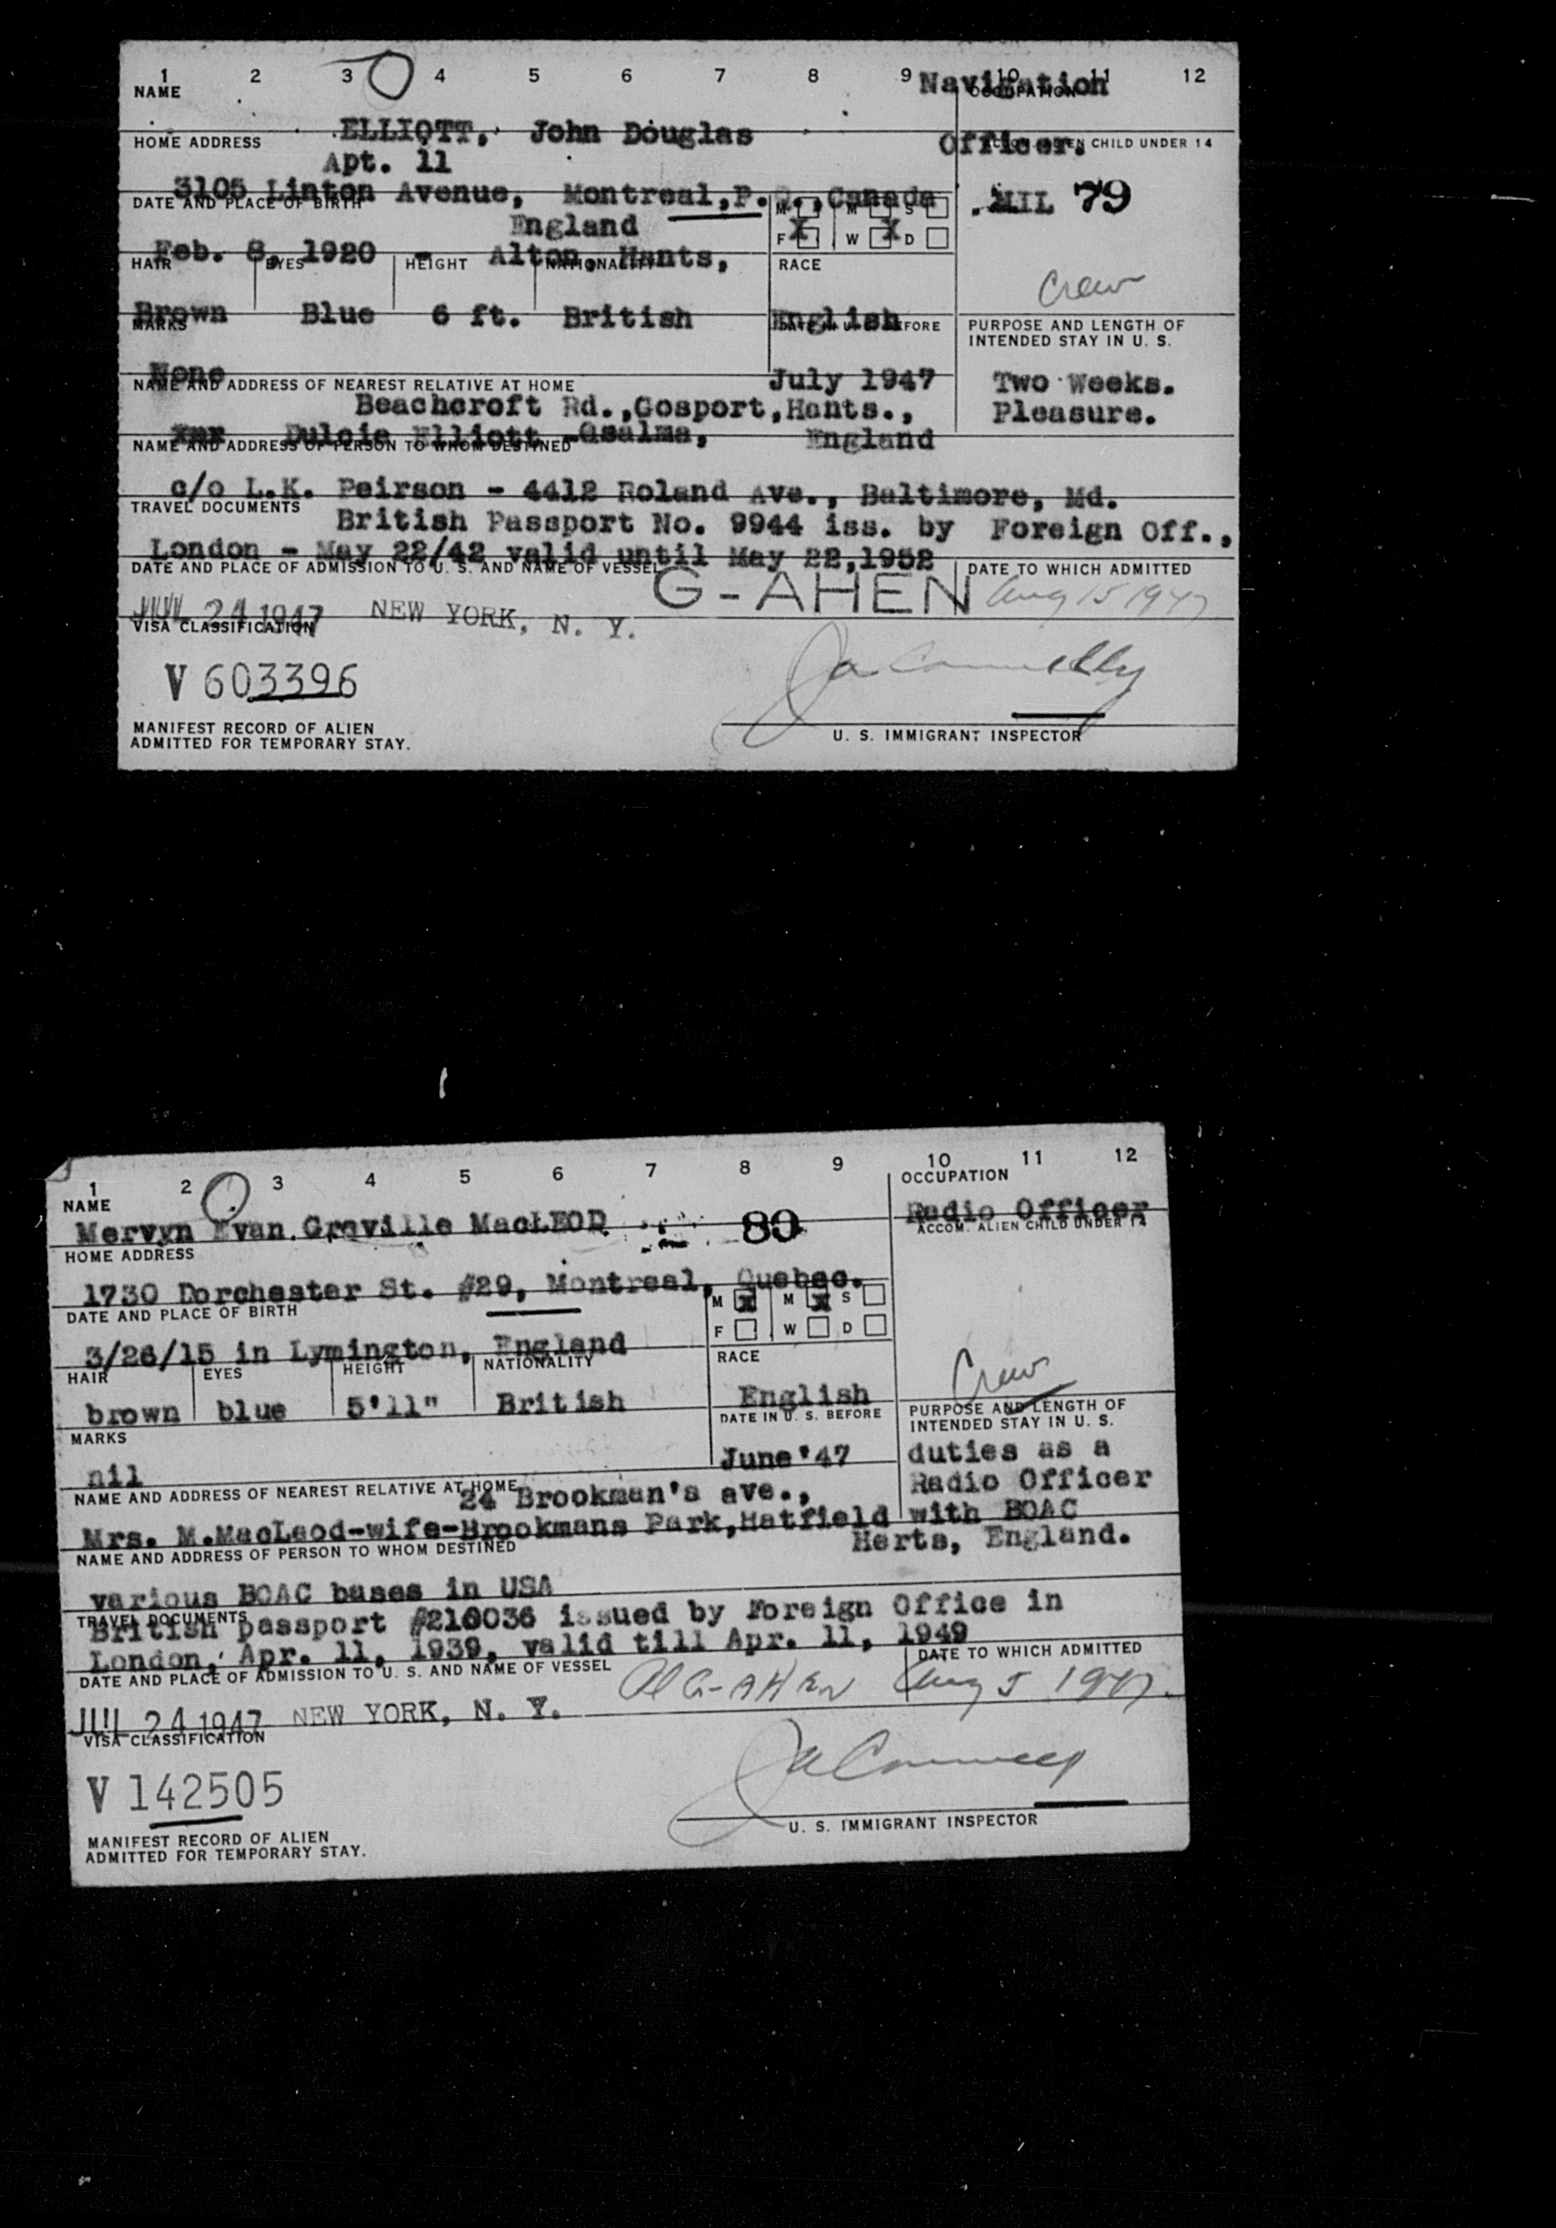 1 2 3 4 5 6 7 8 9 10 11 12
NAME
Navigation
OCCUPATION
ELLIOTT, John Douglas
Officer.
HOME ADDRESS
CHILD UNDER 14
Apt. 11
3105 Linton Avenue, Montreal, P.Q., Canada
NIL 79
DATE AND PLACE OF BIRTH
M M S
England
F X W X D
Feb. 8, 1920 - Alton, Hants,
HAIR EYES HEIGHT NATIONALITY RACE
Crew
Brown Blue 6 ft. British English
MARKS
BEFORE
PURPOSE AND LENGTH OF
INTENDED STAY IN U. S.
None
July 1947 Two Weeks.
NAME AND ADDRESS OF NEAREST RELATIVE AT HOME
Beachcroft Rd.,Gosport,Hants., Pleasure.
Dulcie Elliott - England
NAME AND ADDRESS OF PERSON TO WHOM DESTINED
c/o L.K. Peirson - 4412 Roland Ave., Baltimore, Md.
TRAVEL DOCUMENTS
British Passport No. 9944 iss. by Foreign Off.,
London - May 22/42 valid until May 22,1952
DATE AND PLACE OF ADMISSION TO U. S. AND NAME OF VESSEL DATE TO WHICH ADMITTED
JUL 24 1947 NEW YORK, N. Y. G-AHEN Aug 15 1947
VISA CLASSIFICATION
V 603396
MANIFEST RECORD OF ALIEN
ADMITTED FOR TEMPORARY STAY.
U. S. IMMIGRANT INSPECTOR
1 2 3 4 5 6 7 8 9 10 11 12
NAME OCCUPATION
Mervyn Evan Greville MacLEOD 80 Radio Officer
HOME ADDRESS ACCOM. ALIEN CHILD UNDER 14
1730 Dorchester St. #29, Montreal, Quebec.
DATE AND PLACE OF BIRTH M X M X S
3/26/15 in Lymington, England F W D
HAIR EYES HEIGHT NATIONALITY RACE
Crew
brown blue 5'11" British English
MARKS DATE IN U. S. BEFORE PURPOSE AND LENGTH OF
INTENDED STAY IN U. S.
nil June '47 duties as a
NAME AND ADDRESS OF NEAREST RELATIVE AT HOME
24 Brookman's ave., Radio Officer
Mrs. M.MacLeod-wife-Brookmans Park,Hatfield with BOAC
NAME AND ADDRESS OF PERSON TO WHOM DESTINED
Herts, England.
various BOAC bases in USA
TRAVEL DOCUMENTS
British passport #210036 issued by Foreign Office in
London, Apr. 11, 1939, valid till Apr. 11, 1949
DATE AND PLACE OF ADMISSION TO U. S. AND NAME OF VESSEL DATE TO WHICH ADMITTED
JUL 24 1947 NEW YORK, N. Y. G-AHEN Aug 5 1947.
VISA CLASSIFICATION
V 142505
MANIFEST RECORD OF ALIEN
ADMITTED FOR TEMPORARY STAY.
U. S. IMMIGRANT INSPECTOR